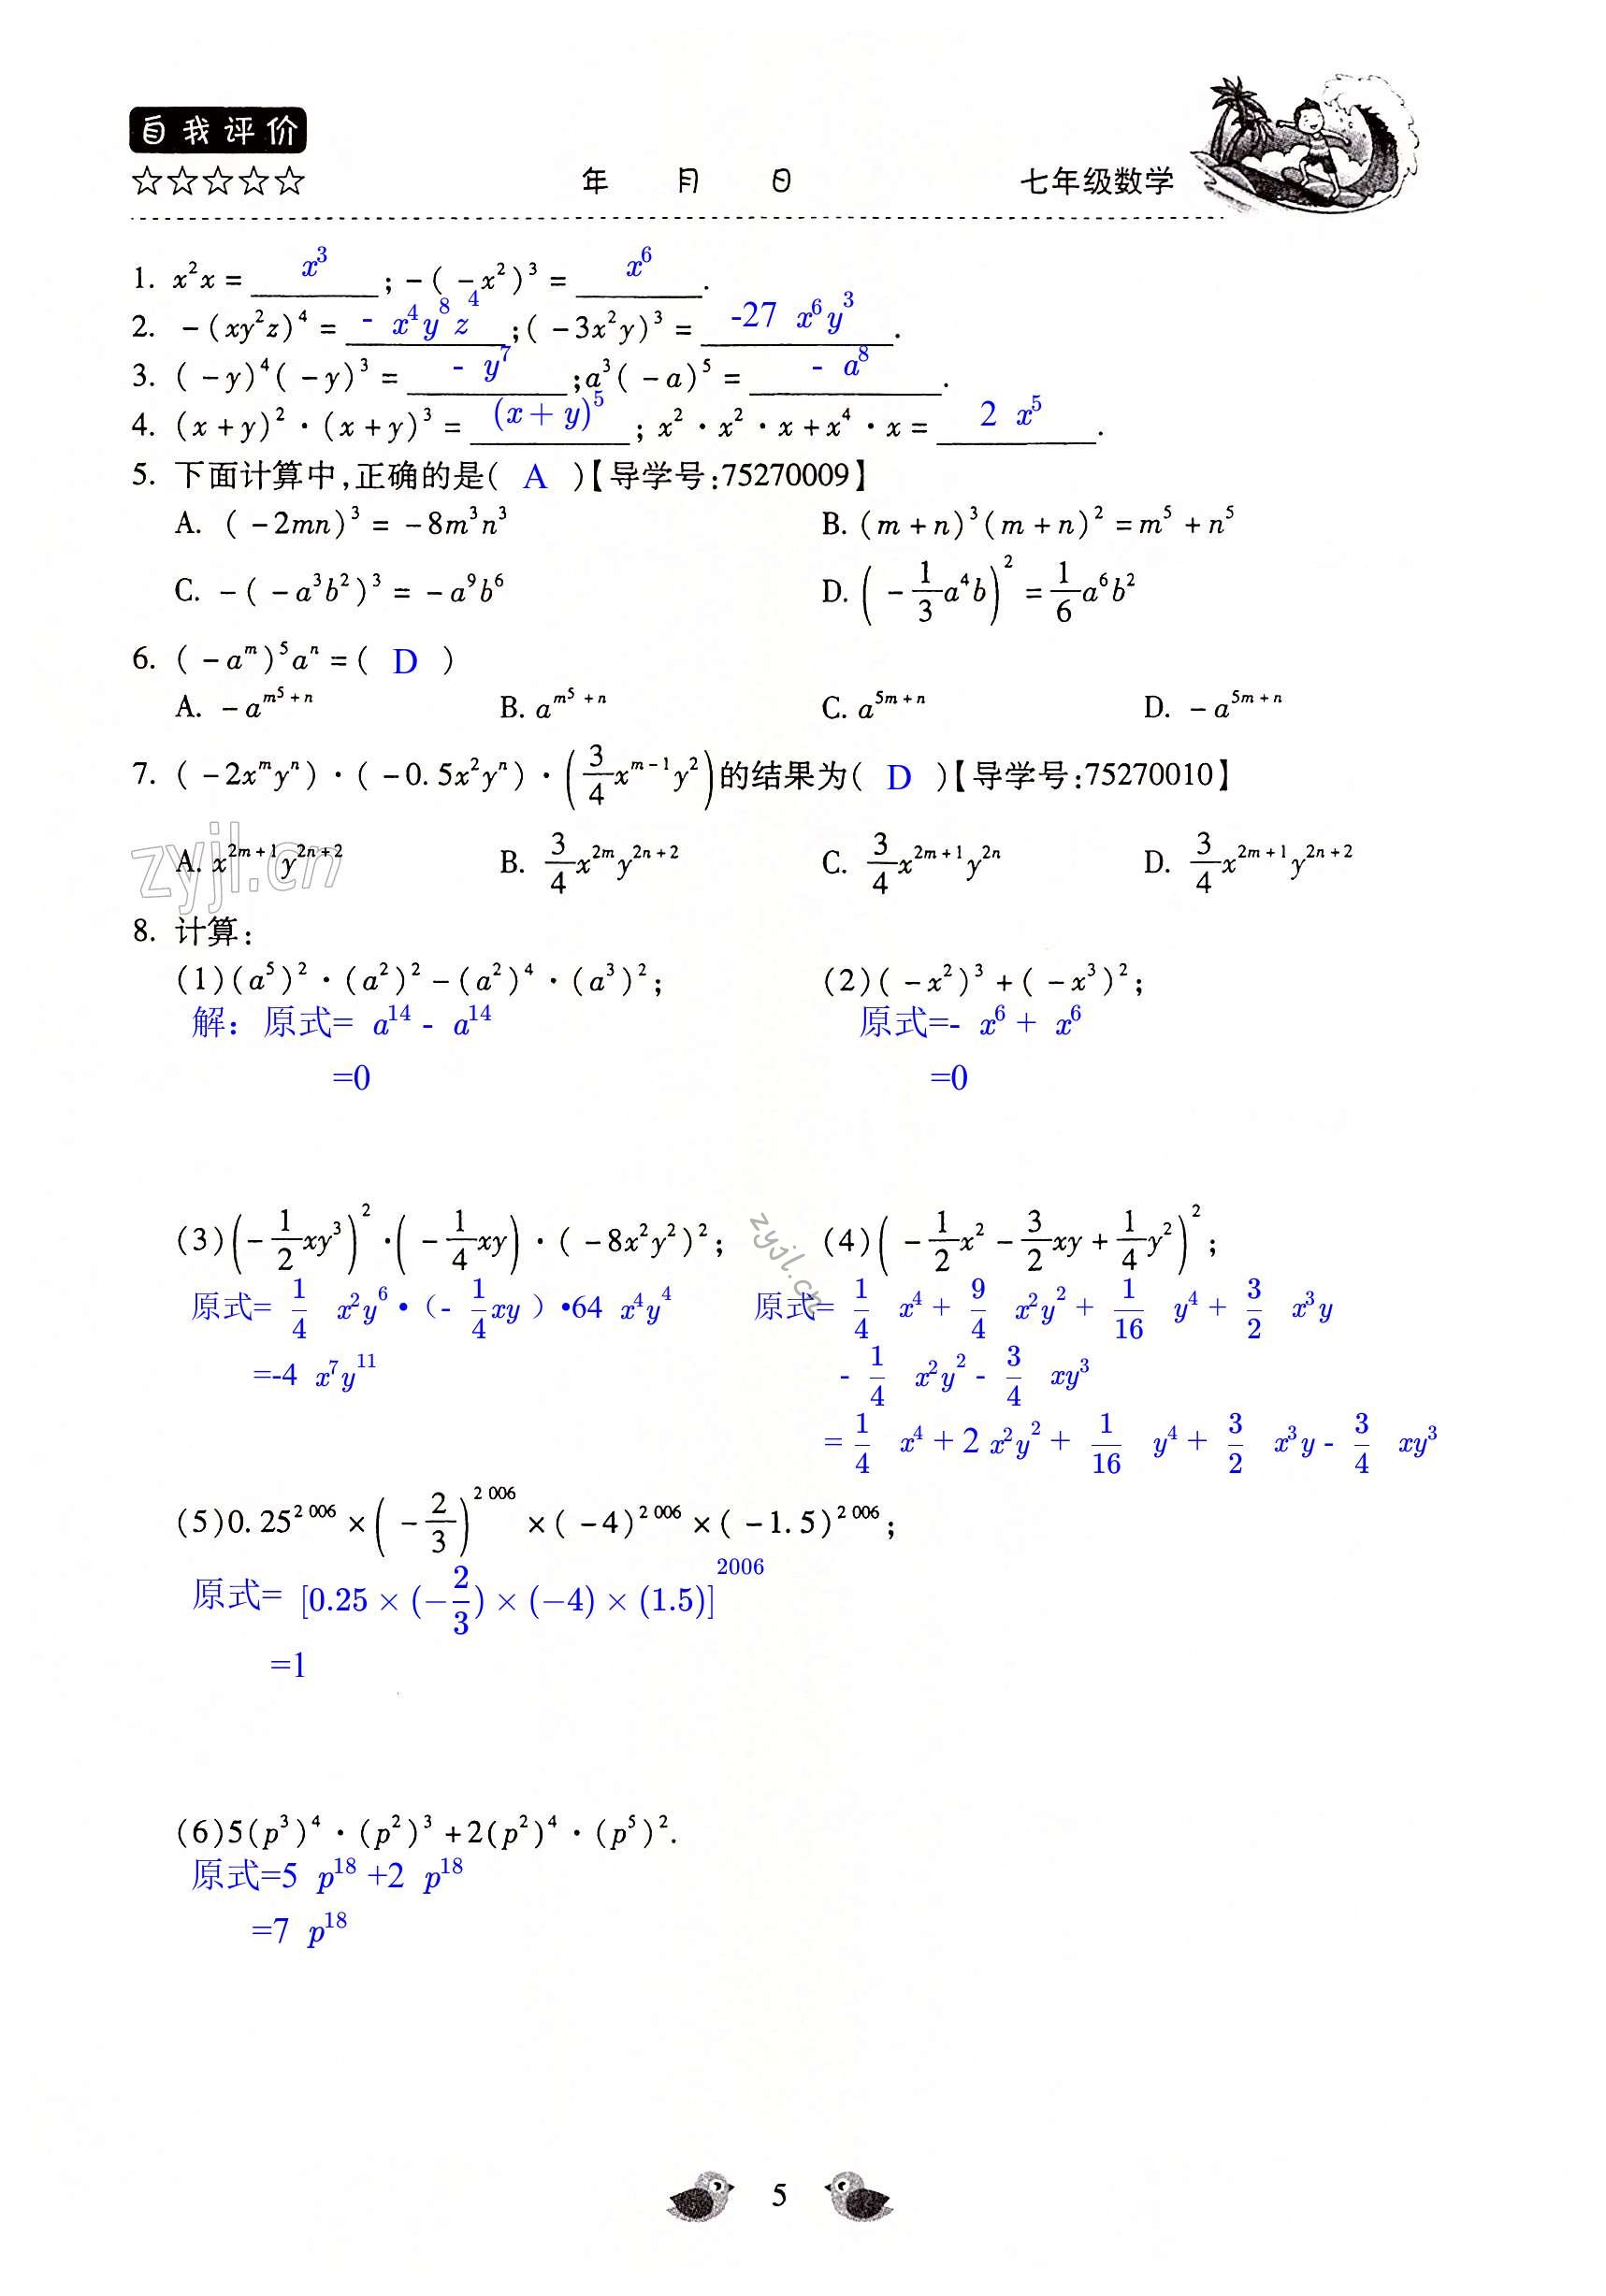 自我评价
☆☆☆☆☆ 年 月 日 七年级数学
1. x²x = x³ ; -(-x²)³ = x⁶ .
2. -(xy²z)⁴ = - x⁴y⁸z⁴ ;(-3x²y)³ = -27 x⁶y³ .
3. (-y)⁴(-y)³ = - y⁷ ;a³(-a)⁵ = - a⁸ .
4. (x+y)²·(x+y)³ = (x+y)⁵ ; x²·x²·x+x⁴·x = 2 x⁵ .
5. 下面计算中,正确的是( A )【导学号:75270009】
A. (-2mn)³ = -8m³n³ B. (m+n)³(m+n)² = m⁵+n⁵
C. -(-a³b²)³ = -a⁹b⁶ D. (-1/3a⁴b)² = 1/6a⁶b²
6. (-a^m)⁵a^n = ( D )
A. -a^(m⁵+n) B. a^(m⁵+n) C. a^(5m+n) D. -a^(5m+n)
7. (-2x^m y^n)·(-0.5x²y^n)·(3/4x^(m-1)y²)的结果为( D )【导学号:75270010】
A. x^(2m+1)y^(2n+2) B. 3/4x^(2m)y^(2n+2) C. 3/4x^(2m+1)y^(2n) D. 3/4x^(2m+1)y^(2n+2)
zyjl.cn
8. 计算:
(1)(a⁵)²·(a²)²-(a²)⁴·(a³)²; (2)(-x²)³+(-x³)²;
解：原式= a¹⁴ - a¹⁴ 原式=- x⁶ + x⁶
=0 =0
(3)(-1/2xy³)²·(-1/4xy)·(-8x²y²)²; (4)(-1/2x²-3/2xy+1/4y²)²;
zyjl.cn
原式= 1/4 x²y⁶•（- 1/4xy ）•64 x⁴y⁴ 原式= 1/4 x⁴ + 9/4 x²y² + 1/16 y⁴ + 3/2 x³y
=-4 x⁷y¹¹ - 1/4 x²y² - 3/4 xy³
= 1/4 x⁴ + 2 x²y² + 1/16 y⁴ + 3/2 x³y - 3/4 xy³
(5)0.25^2 006×(-2/3)^2 006×(-4)^2 006×(-1.5)^2 006;
原式= [0.25×(-2/3)×(-4)×(1.5)]^2006
=1
(6)5(p³)⁴·(p²)³+2(p²)⁴·(p⁵)².
原式=5 p¹⁸ +2 p¹⁸
=7 p¹⁸
5